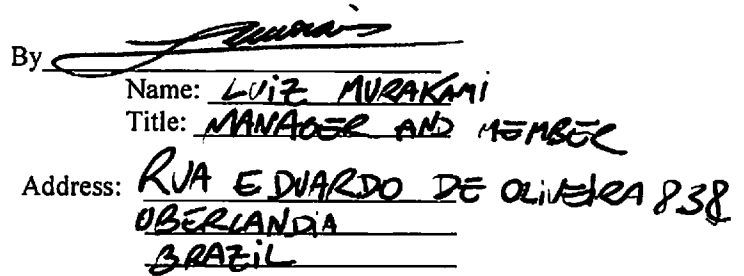 By
Name: LUiZ MURAKAMI
Title: MANAGER AND MEMBER
Address: RUA EDUARDO DE OLiVEiRA 838
UBERLANDiA
BRAZiL